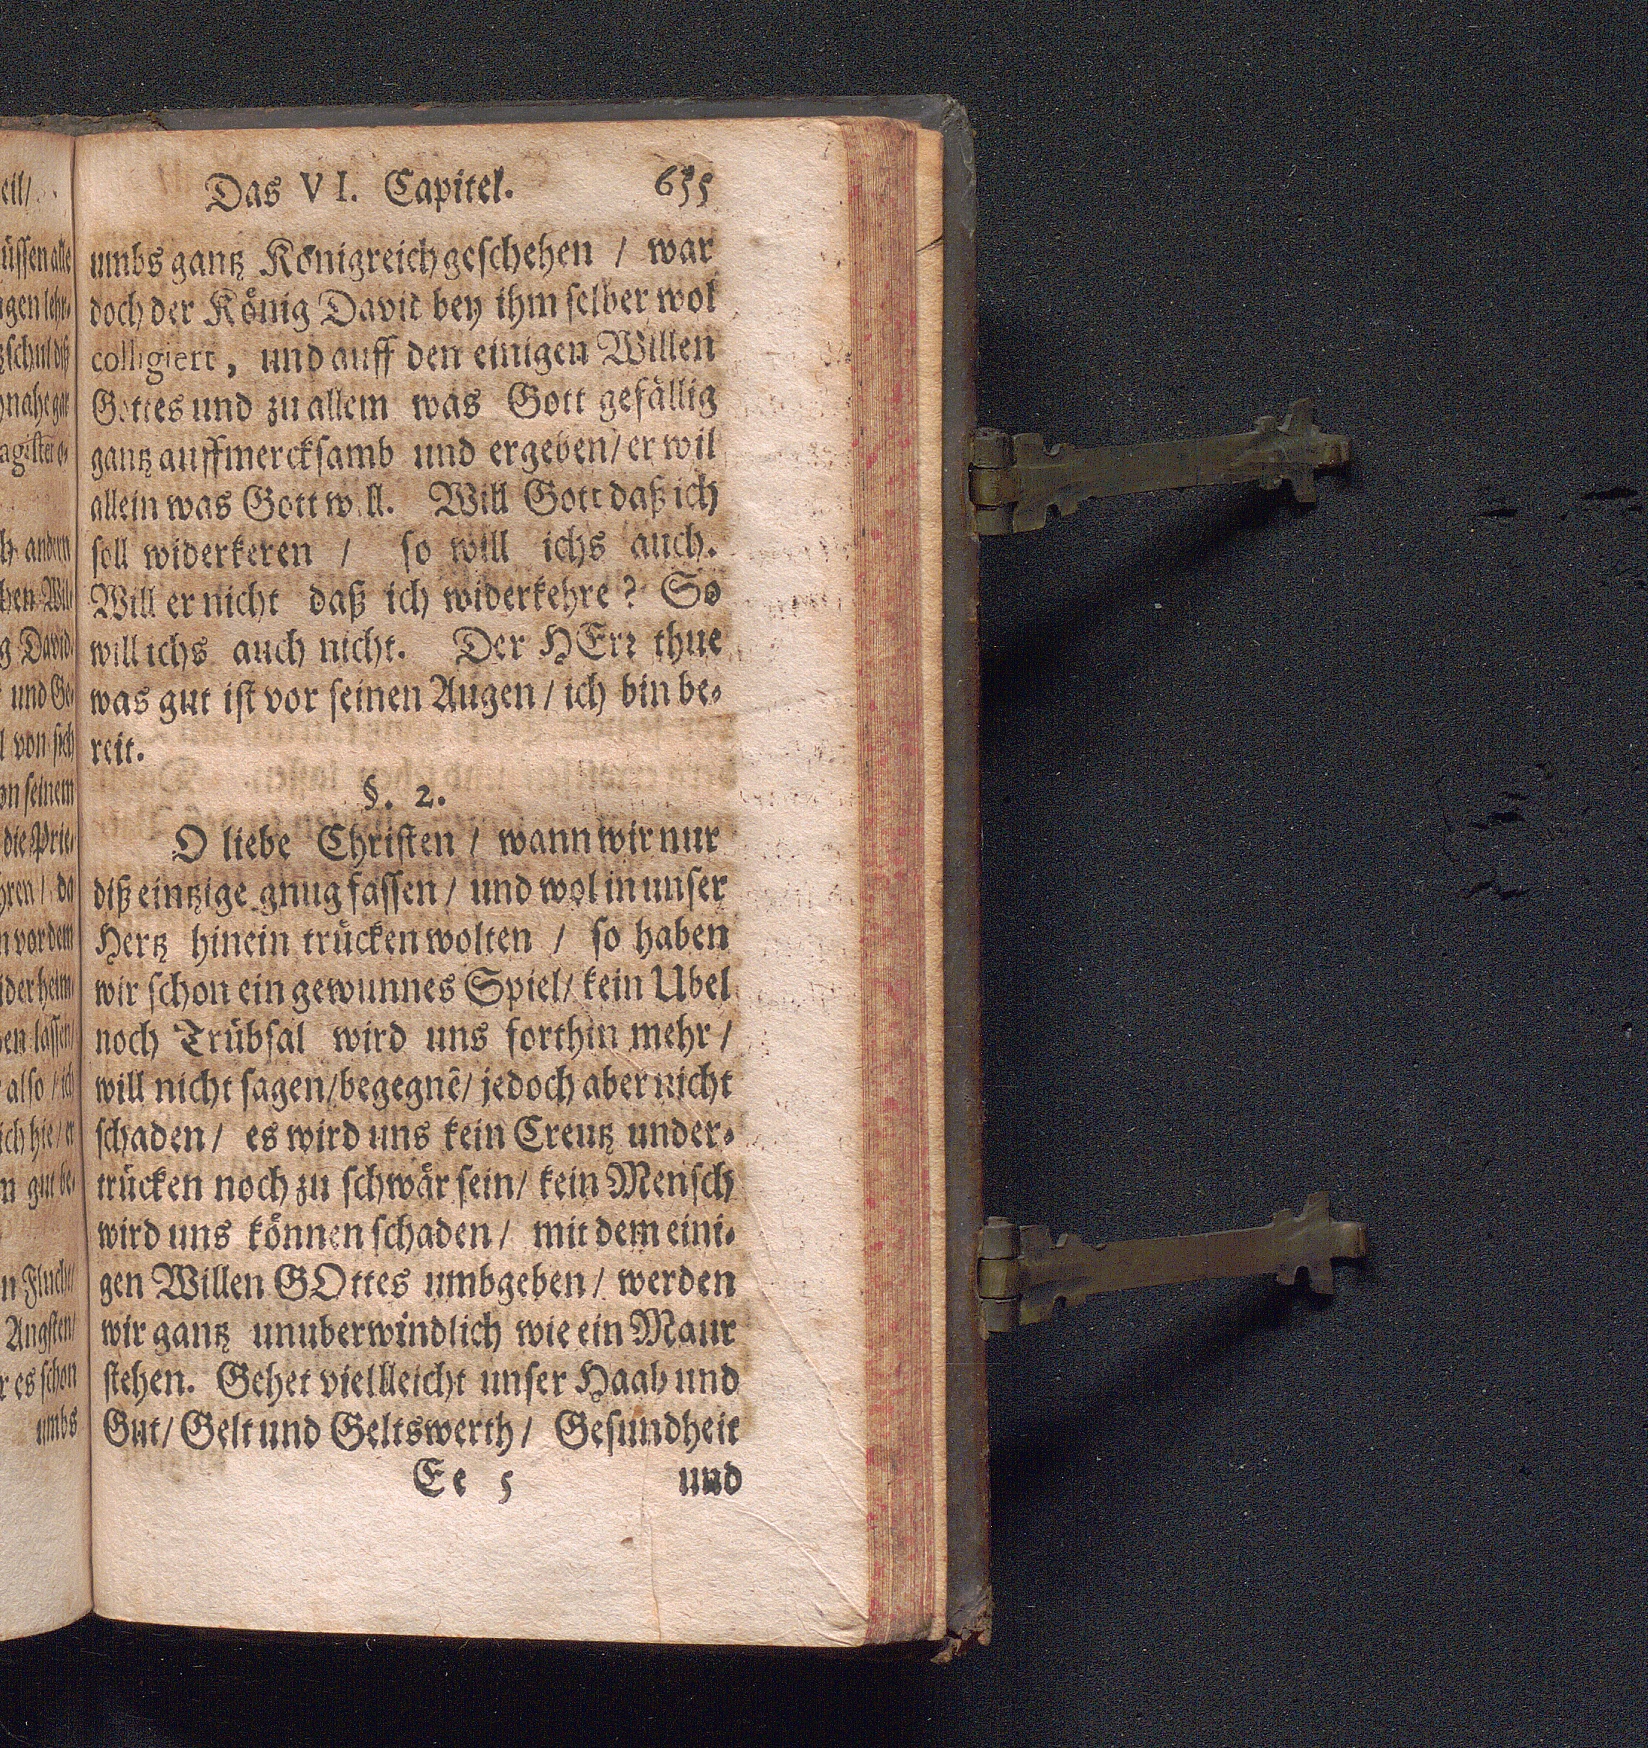 Das VI. Capitel. 655
umbs gantz Königreich geschehen / war
doch der König David bey ihm selber wol
colligiert, und auff den einigen Willen
Gottes und zu allem was Gott gefällig
gantz auffmercksamb und ergeben / er wil
allein was Gott will. Will Gott daß ich
soll widerkeren / so will ichs auch.
Will er nicht daß ich widerkehre? So
will ichs auch nicht. Der HErr thue
was gut ist vor seinen Augen / ich bin be-
reit.
§. 2.
O liebe Christen / wann wir nur
diß eintzige gnug fassen / und wol in unser
Hertz hinein trücken wolten / so haben
wir schon ein gewunnes Spiel / kein Ubel
noch Trübsal wird uns forthin mehr /
will nicht sagen / begegnẽ / jedoch aber nicht
schaden / es wird uns kein Creutz under-
trücken noch zu schwär sein / kein Mensch
wird uns können schaden / mit dem eini-
gen Willen GOttes umbgeben / werden
wir gantz unuberwindlich wie ein Maur
stehen. Gehet viellleicht unser Haab und
Gut / Gelt und Geltswerth / Gesundheit
Ee 5 und